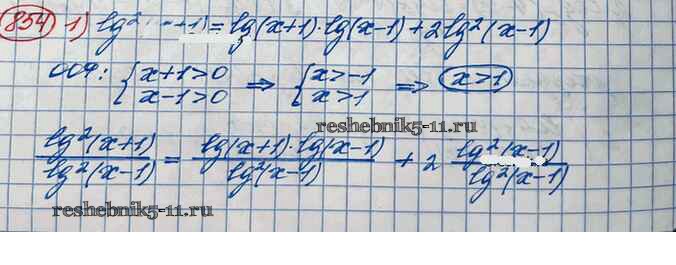 854 1) lg² +1) = lg(x+1)·lg(x-1)+2lg²(x-1)
ОДЗ: {x+1>0 x-1>0 ⇒ {x>-1 x>1 ⇒ x>1
reshebnik5-11.ru
lg²(x+1)/lg²(x-1) = lg(x+1)·lg(x-1)/lg²(x-1) + 2 lg²(x-1)/lg²(x-1)
reshebnik5-11.ru